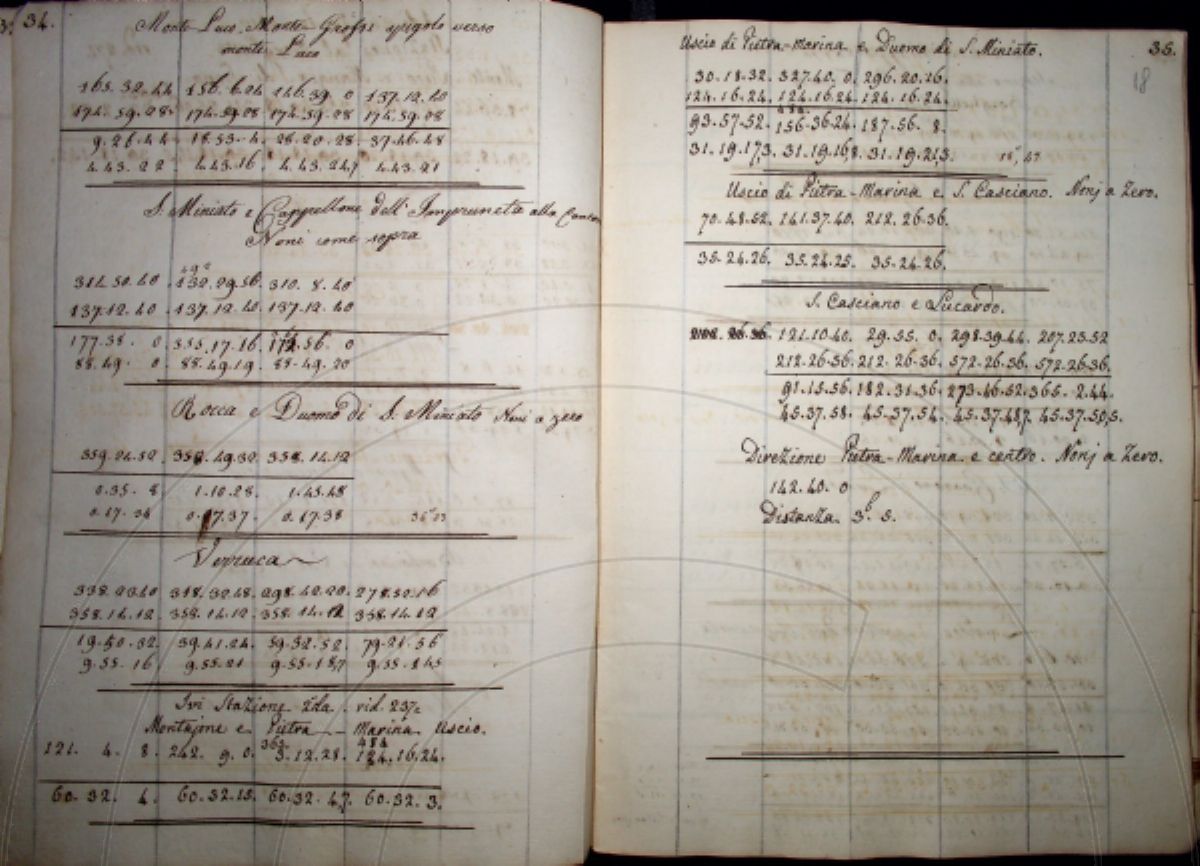 34.
Monte Luco, Monte Grossi spigolo verso
monte Luco
165. 32. 44 156. 6. 04 146. 39. 0 137. 12. 40
174. 59. 28. 174. 59. 28 174. 59. 28 174. 59. 28
9. 26. 44 18. 53. 4. 28. 20. 28. 37. 46. 48
4. 43. 22 4. 43. 16. 4. 43. 24,7 4. 43. 21
S. Miniato e Cappellone dell'Impruneta alla
Noni come sopra
314. 50. 40 132. 29. 56. 310. 8. 40
137. 12. 40 137. 12. 40 137. 12. 40
177. 38. 0 355. 17. 16. 172. 56. 0
88. 49. 0 88. 49. 19. 88. 49. 20
Rocca e Duomo di S. Miniato Noni a zero
359. 24. 52 358. 49. 32. 358. 14. 12
0. 35. 8 1. 10. 28. 1. 45. 48
0. 17. 34 0. 17. 37. 0. 17. 38
Verruca
338. 23. 40 318. 32. 48. 298. 42. 20. 278. 52. 16
358. 14. 12. 358. 14. 12. 358. 14. 12 358. 14. 12
19. 50. 32. 39. 41. 24. 59. 32. 52. 79. 21. 56
9. 55. 16 9. 55. 21 9. 55. 18,7 9. 55. 14,5
Ivi Stazione 2da. vid. 237.
Montajone e Pietra-Marina Uscio.
363. 484
121. 4. 8. 242. 9. 0. 3. 12. 28. 124. 16. 24.
60. 32. 4. 60. 32. 15. 60. 32. 4,7. 60. 32. 3.
35.
18
Uscio di Pietra-marina e Duomo di S. Miniato.
30. 18. 32. 327. 40. 0. 296. 20. 16.
124. 16. 24. 124. 16. 24. 124. 16. 24.
484.
93. 57. 52. 156. 36. 24. 187. 56. 8.
31. 19. 17,3. 31. 19. 16,8. 31. 19. 21,3. 18", 47
Uscio di Pietra-Marina e S. Casciano. Nonj a Zero.
70. 48. 52. 141. 37. 40. 212. 26. 36.
35. 24. 26. 35. 24. 25. 35. 24. 26.
S. Casciano e Lucardo.
212. 26. 36. 121. 10. 40. 29. 55. 0. 298. 39. 44. 207. 23. 52
212. 26. 36. 212. 26. 36. 572. 26. 36. 572. 26. 36.
91. 15. 56. 182. 31. 36. 273. 46. 52. 365. 2. 44.
45. 37. 58. 45. 37. 54. 45. 37. 48,7. 45. 37. 50,5.
Direzione Pietra-Marina e centro. Nonj a Zero.
142. 40. 0
Distanza 3b. 5.